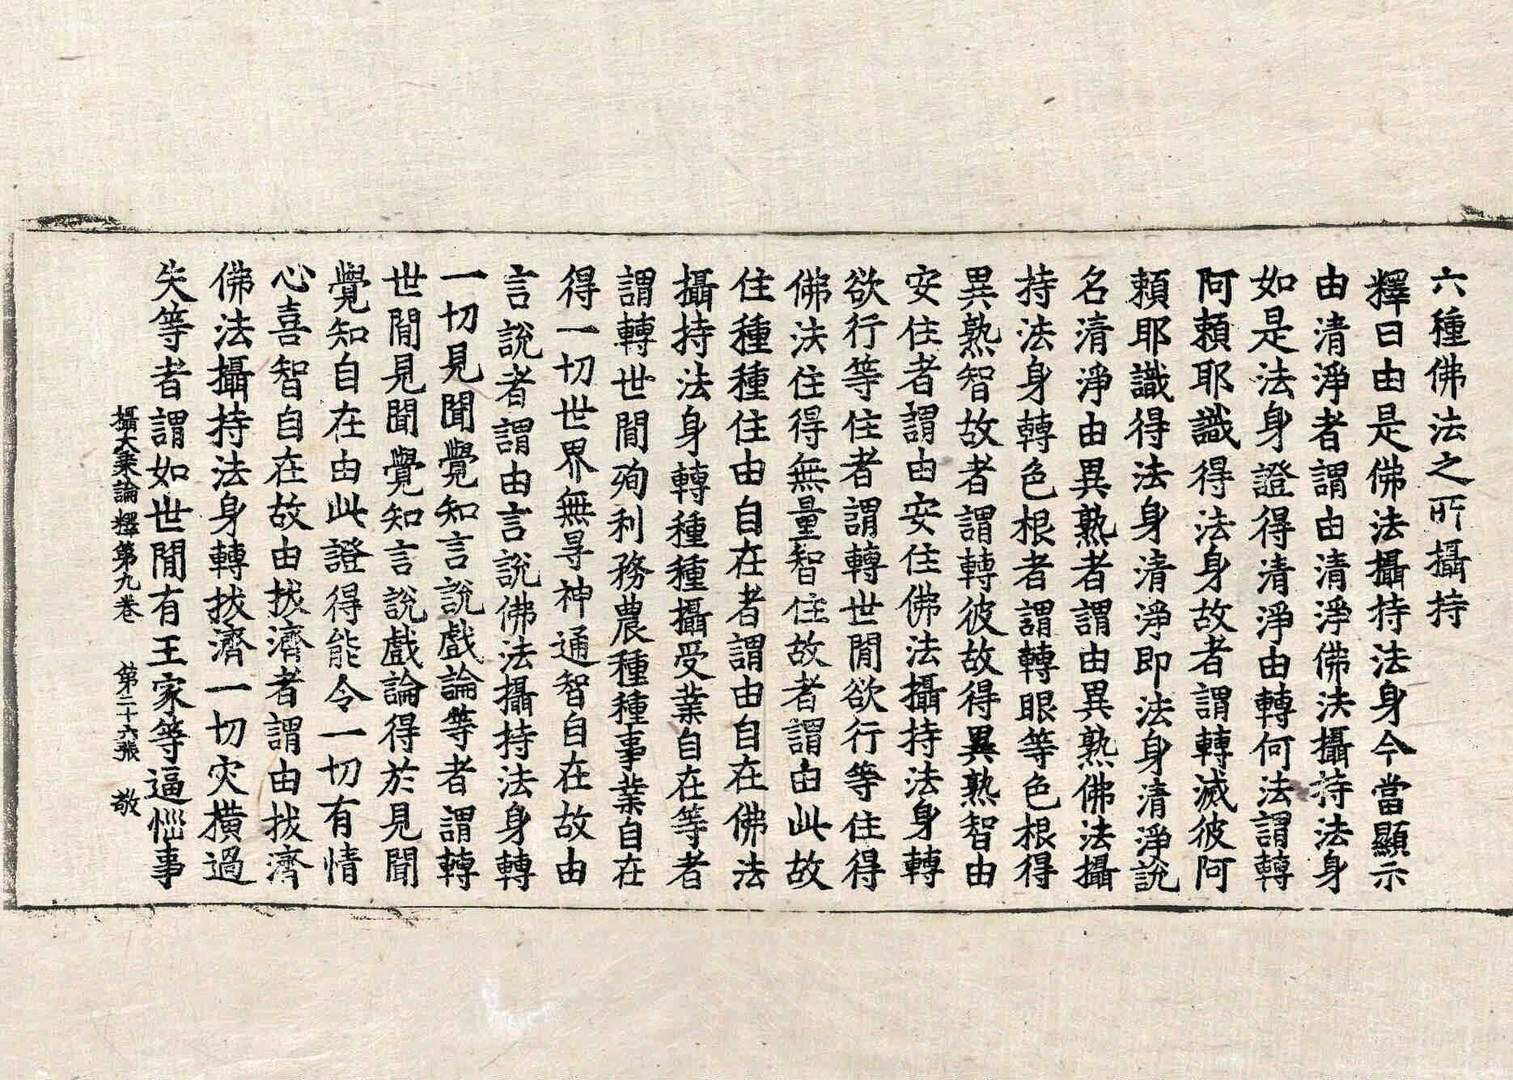 六種佛法之所攝持
釋曰由是佛法攝持法身今當顯示
由清淨者謂由清淨佛法攝持法身
如是法身證得清淨由轉何法謂轉
阿賴耶識得法身故者謂轉滅彼阿
賴耶識得法身清淨即法身清淨說
名清淨由異熟者謂由異熟佛法攝
持法身轉色根者謂轉眼等色根得
異熟智故者謂轉彼故得異熟智由
安住者謂由安住佛法攝持法身轉
欲行等住者謂轉世間欲行等住得
佛法住得無量智住故者謂由此故
住種種住由自在者謂由自在佛法
攝持法身轉種種攝受業自在等者
謂轉世間殉利務農種種事業自在
得一切世界無㝵神通智自在故由
言說者謂由言說佛法攝持法身轉
一切見聞覺知言說戲論等者謂轉
世間見聞覺知言說戲論得於見聞
覺知自在由此證得能令一切有情
心喜智自在故由拔濟者謂由拔濟
佛法攝持法身轉拔濟一切灾橫過
失等者謂如世間有王家等逼惱事
攝大乘論釋第九卷 第二十六張 敬